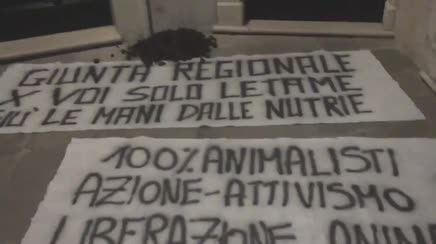 GIUNTA REGIONALE
X VOI SOLO LETAME
GIÙ LE MANI DALLE NUTRIE
100% ANIMALISTI
AZIONE-ATTIVISMO
LIBERAZIONE